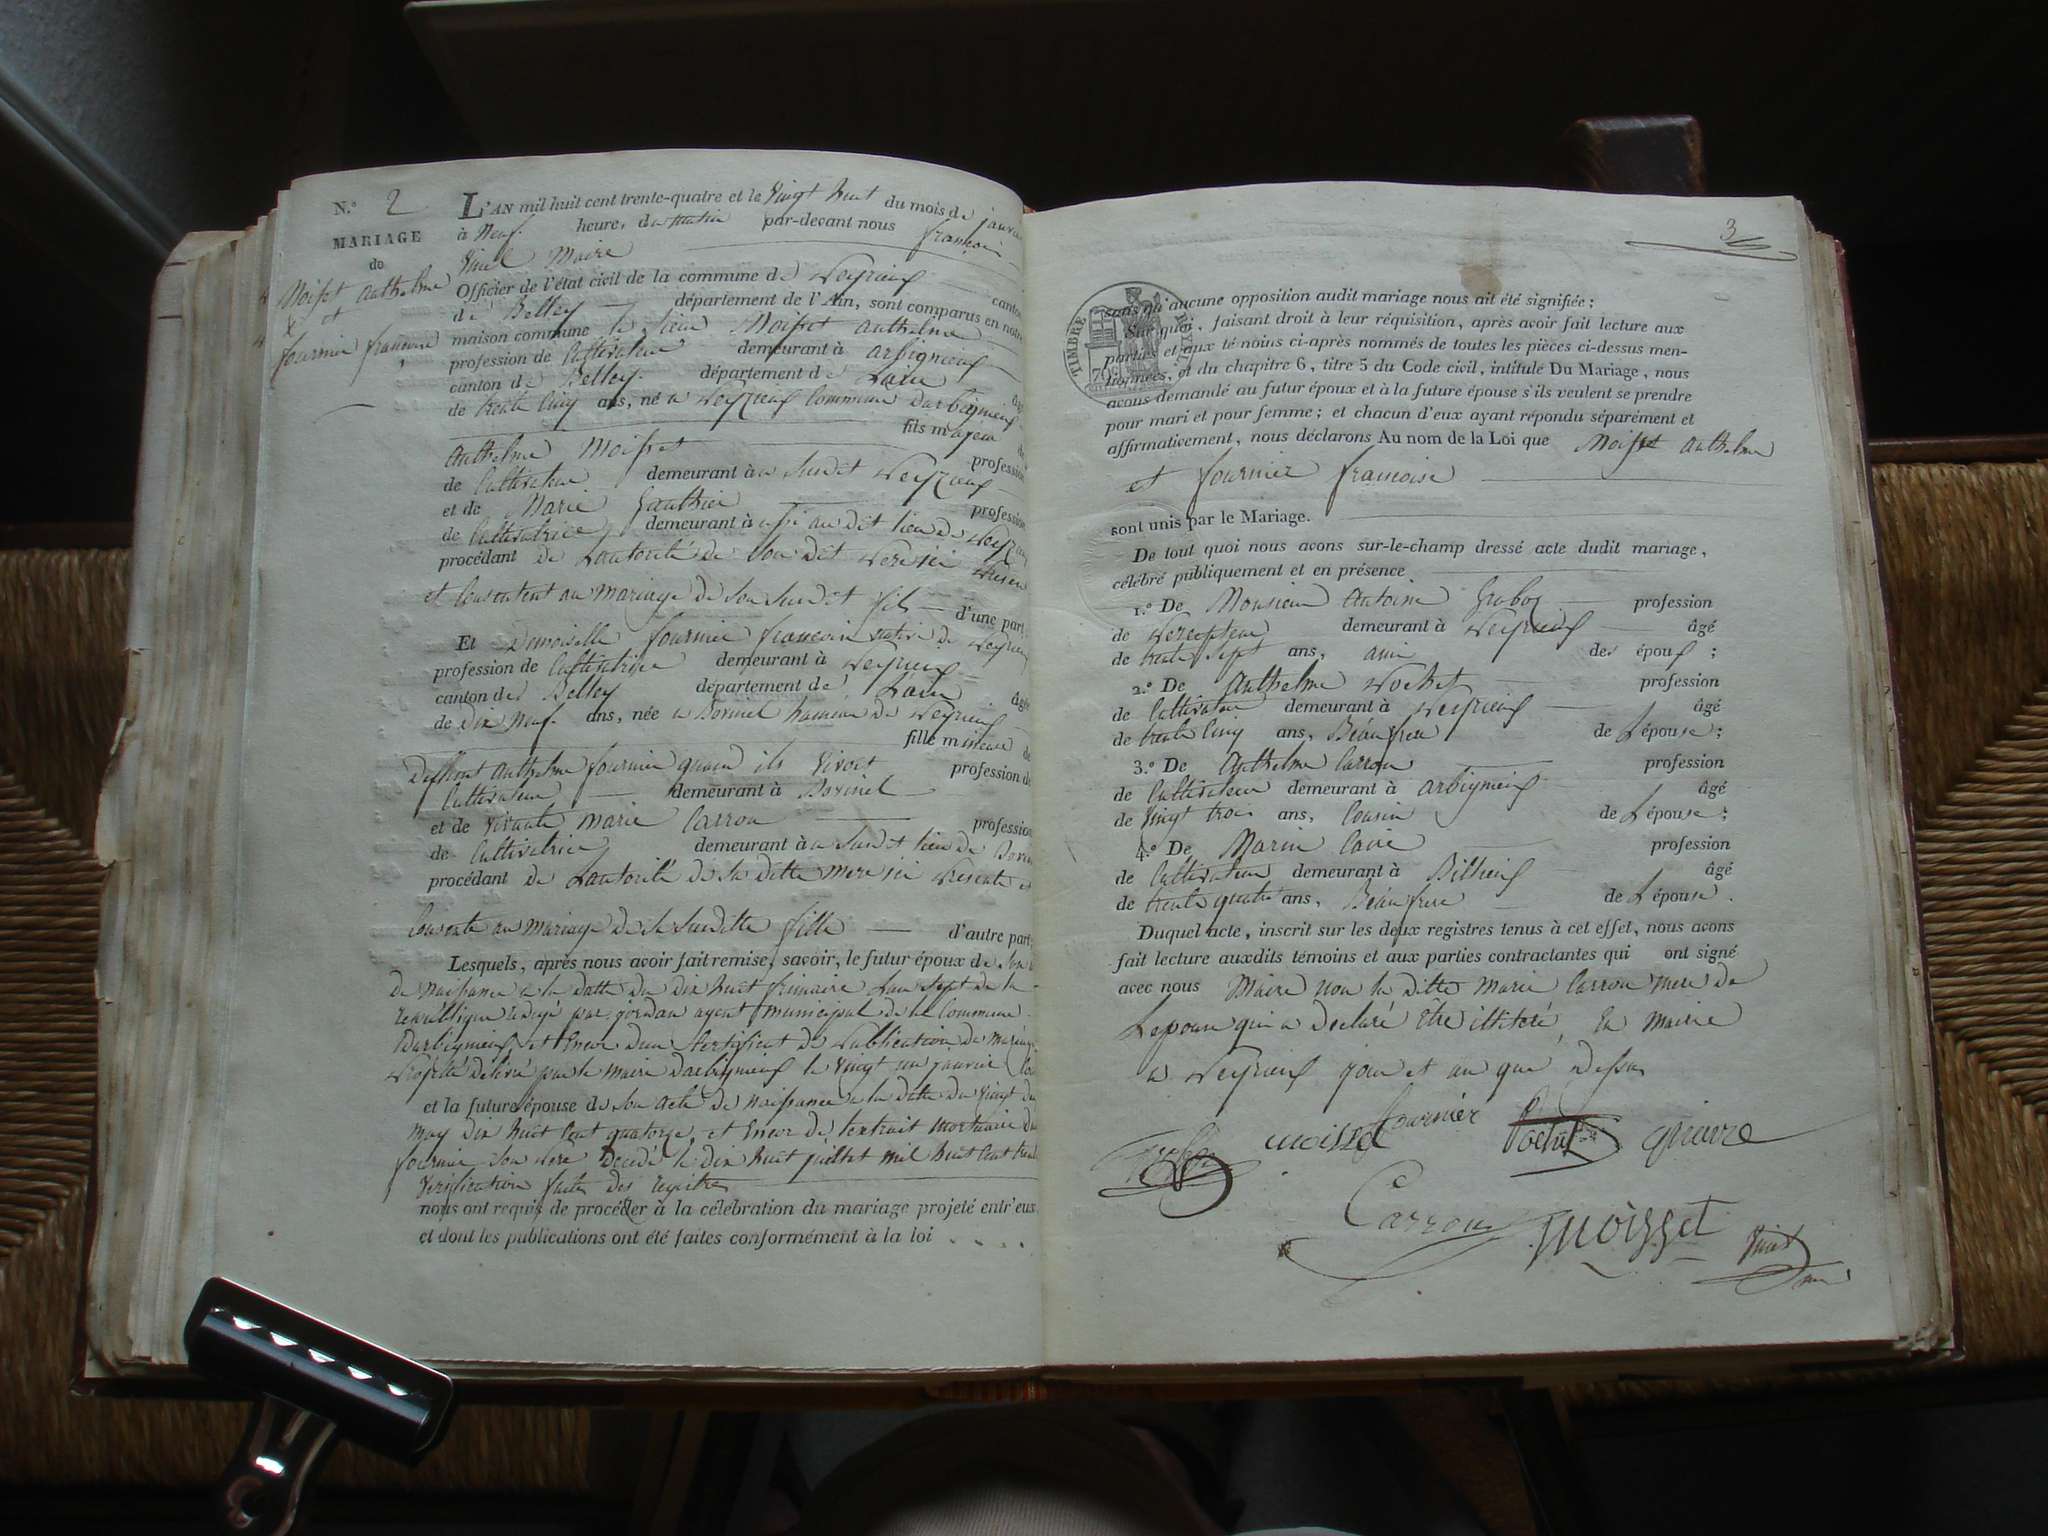 N.o 2
MARIAGE
de
Moisset Anthelme
et
fournier francoise
L'AN mil huit cent trente-quatre et le vingt huit du mois de janvier
à neuf heures du matin par-devant nous françois
Maire
Officier de l'état civil de la commune de canton
de Belley département de l'Ain, sont comparus en notre
maison commune le sieur Moisset anthelme
profession de Cultivateur demeurant à arbignieux
canton de Belley département de Lain âgé
de trente cinq ans, né a commune Darbignieux
fils majeur de
Anthelme Moisset profession
de Cultivateur demeurant à susdit
et de Marie Gauthier profession
de Cultivatrice demeurant à au dit lieu de
procédant de Lautorité de son dit
et consentent au mariage de son susdit fils d'une part.
Et Demoiselle fournier francoise native de
profession de Cultivatrice demeurant à
canton de Belley département de Lain âgée
de dix neuf ans, née a hameau de
fille mineure de
Deffunt anthelme fournier quand il vivoit profession de
Cultivateur demeurant à
et de vivante marie Carron profession
de Cultivatrice demeurant à susdit lieu de
procédant de Lautorité de sa ditte mere ici présente et
consente au mariage de sa susditte fille d'autre part;
Lesquels, après nous avoir fait remise, savoir, le futur époux de son
de naissance a la datte du dix huit frimaire Lan sept de la
republique redigé par jordan agent municipal de la Commune
Darbignieux et encore dun Certificat de publication de mariage
projeté délivré par le maire Darbignieux le vingt un janvier
et la future épouse de son acte de naissance a la datte du vingt
may dix huit cent quatorze, et encor de lextrait mortuaire de
fournier son pere décédé le dix huit juillet mil huit cent
verification faite des registres
nous ont requis de procéder à la célébration du mariage projeté entr'eux
et dont les publications ont été faites conformément à la loi . . . .
3
TIMBRE ROYAL
70c
sans qu'aucune opposition audit mariage nous ait été signifiée;
Sur quoi, faisant droit à leur réquisition, après avoir fait lecture aux
parties et aux témoins ci-après nommés de toutes les pièces ci-dessus men-
tionnées, et du chapitre 6, titre 5 du Code civil, intitulé Du Mariage, nous
avons demandé au futur époux et à la future épouse s'ils veulent se prendre
pour mari et pour femme; et chacun d'eux ayant répondu séparément et
affirmativement, nous déclarons Au nom de la Loi que Moisset anthelme
et fournier francoise
sont unis par le Mariage.
De tout quoi nous avons sur-le-champ dressé acte dudit mariage,
célébré publiquement et en présence
1.o De Monsieur Antoine profession
de percepteur demeurant à âgé
de trente sept ans, ami des époux;
2.o De Anthelme Pochet profession
de Cultivateur demeurant à âgé
de trente cinq ans, Béaufrere de Lépouse;
3.o De Anthelme Carron profession
de Cultivateur demeurant à arbignieux âgé
de vingt trois ans, Cousin de Lépouse;
4.o De Marin profession
de Cultivateur demeurant à âgé
de trente quatre ans, Béaufrere de Lépouse.
Duquel acte, inscrit sur les deux registres tenus à cet effet, nous avons
fait lecture auxdits témoins et aux parties contractantes qui ont signé
avec nous Maire non la ditte Marie Carron mere de
Lepouse qui a déclaré être illitéré, En Mairie
a jour et an que dessus
moisset fournier Pochet
Carron moisset